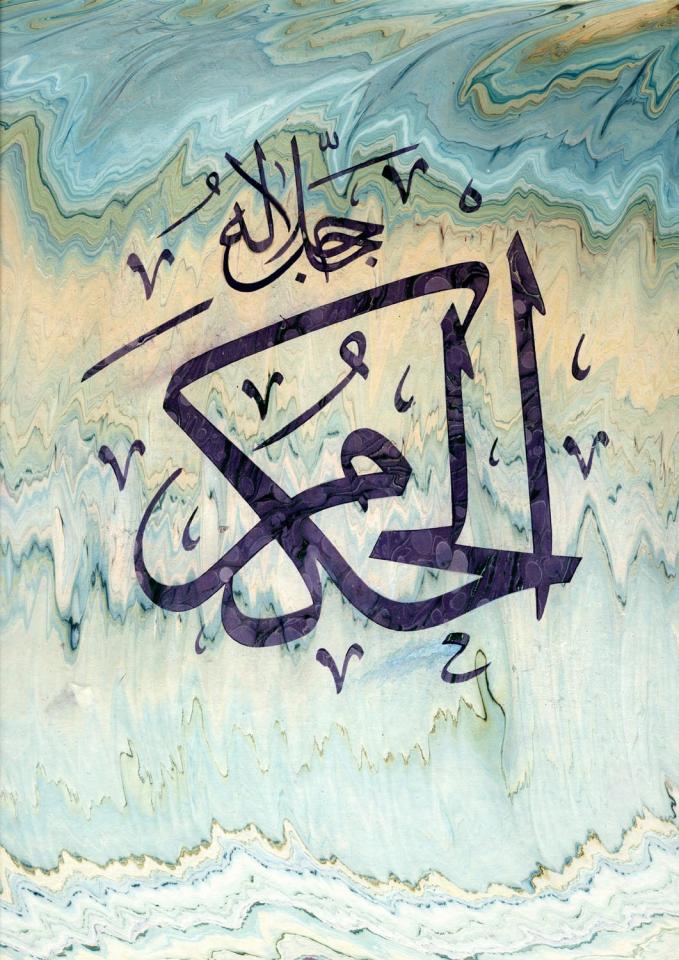 جل جلاله
الحكم